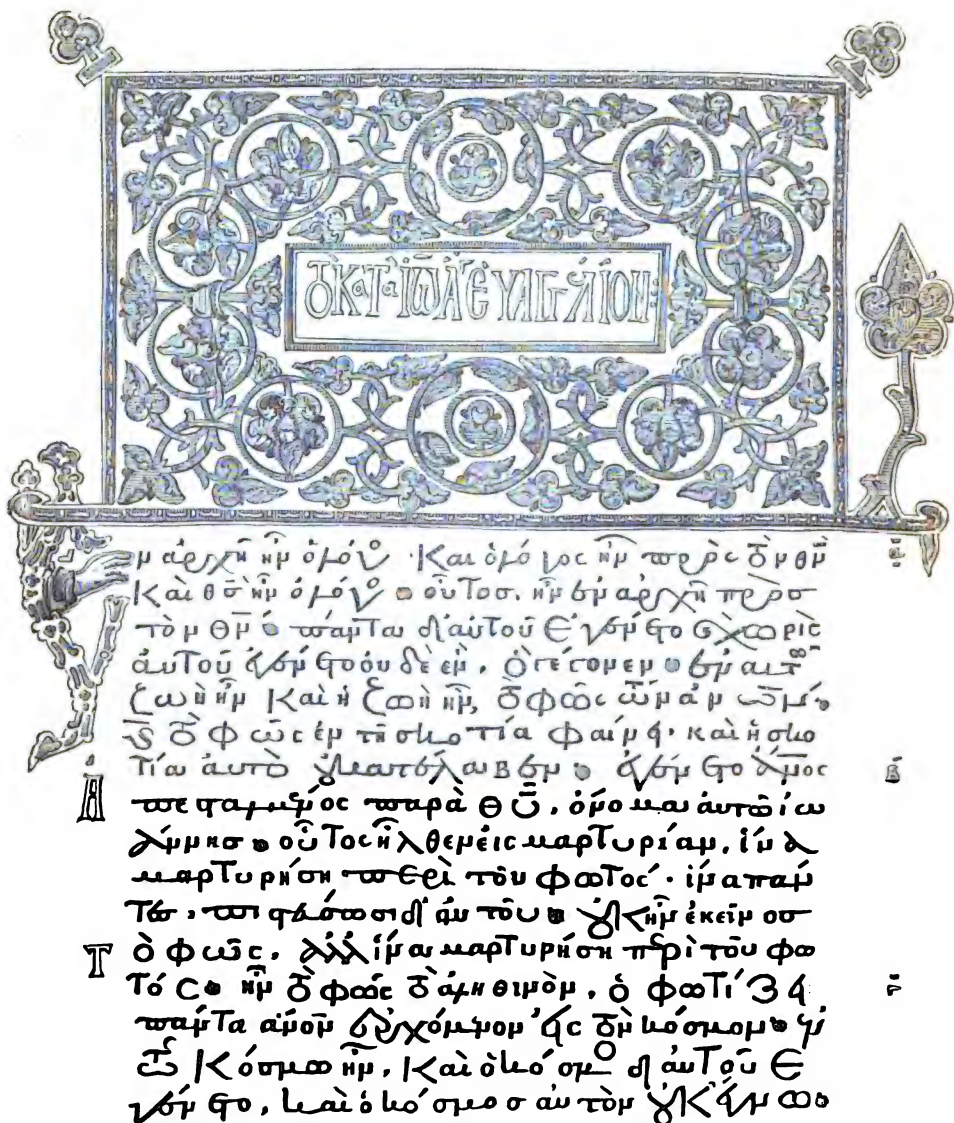 τὸ κατὰ Ἰωά εὐαγγέλιον
Ἐν ἀρχῇ ἦν ὁ λόγος· καὶ ὁ λόγος ἦν πρὸς τὸν θν̅
καὶ θσ̅ ἦν ὁ λόγος· οὗτοσ ἦν ἐν ἀρχῆ πρὸσ
τὸν θν̅· πάντα δι' αὐτοῦ ἐγένετο ϗ χωρὶς
αὐτοῦ ἐγένετο οὐδὲ ἓν, ὃ γέγονεν· ἐν αὐτῶ
ζωὴ ἦν καὶ ἡ ζωὴ ἦν, τὸ φῶς τῶν ανων̅·
ϗ τὸ φῶς ἐν τῆ σκοτία φαίνει· καὶ ἡ σκο
τία αὐτὸ οὐ κατέλαβεν· ἐγένετο ανος̅ β̅
ἀπεσταλμένος παρὰ θυ̅, ὄνομα αὐτῶ ἰω
άννησ· οὗτος ἦλθεν εἰς μαρτυρίαν, ἵνα
μαρτυρήση περὶ τοῦ φωτός· ἵνα πάν
τες, πιστεύσωσι δι' αὐτοῦ· οὐκ ἦν ἐκεῖνοσ
τὸ φῶς, ἀλλ' ἵνα μαρτυρήση περὶ τοῦ φω
τός· ἦν τὸ φῶς τὸ ἀληθινὸν, ὃ φωτίζει γ̅
πάντα ανον̅ ἐρχόμενον εἰς τὸν κόσμον· ἐν
τῶ κόσμω ἦν, καὶ ὁ κόσμος δι' αὐτοῦ ἐ
γένετο, καὶ ὁ κόσμοσ αὐτὸν οὐκ ἔγνω·